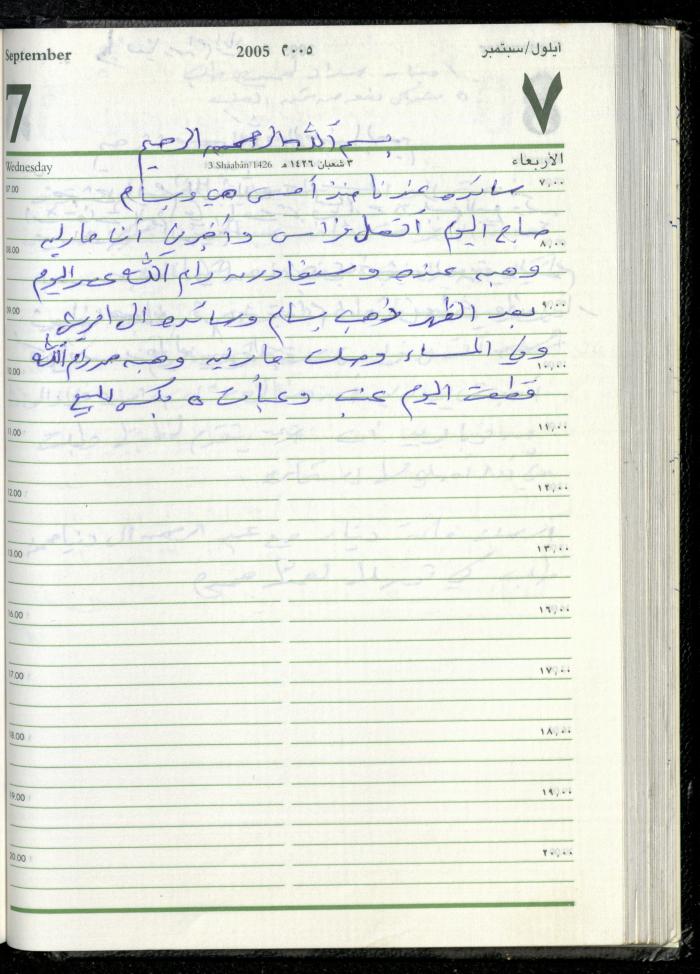 September 2005 ٢٠٠٥ ايلول/سبتمبر
7 ٧
بسم الله الرحمن الرحيم
Wednesday 3 Shaabân 1426 ٣ شعبان ١٤٢٦ هـ الأربعاء
سائده عندنا منذ أمس هي وبسام
صباح اليوم أتصل فراس وأخبرني أن ماريه
وهبه عنده وسيغادرن رام الله عصر اليوم
بعد الظهر ذهب بسام وسائده ال
وفي المساء وصلت ماريه وهبه من رام الله
قطفت اليوم عنب وعبأت ٥ بكس للبيع
07.00 ٧,٠٠
08.00 ٨,٠٠
09.00 ٩,٠٠
10.00 ١٠,٠٠
11.00 ١١,٠٠
12.00 ١٢,٠٠
13.00 ١٣,٠٠
16.00 ١٦,٠٠
17.00 ١٧,٠٠
18.00 ١٨,٠٠
19.00 ١٩,٠٠
20.00 ٢٠,٠٠